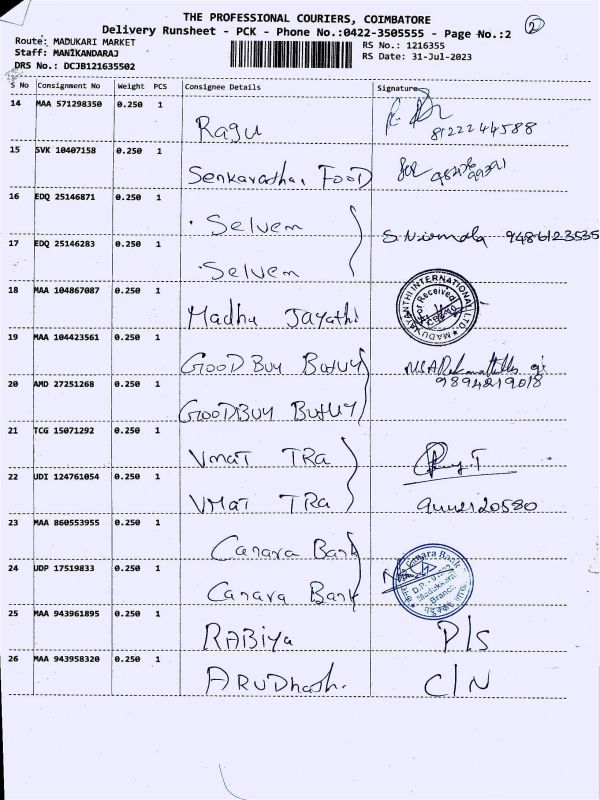 THE PROFESSIONAL COURIERS, COIMBATORE
Delivery Runsheet - PCK - Phone No.:0422-3505555 - Page No.:2 2
Route: MADUKARI MARKET
Staff: MANIKANDARAJ
DRS No.: DCJB121635502
RS No.: 1216355
RS Date: 31-Jul-2023
S No Consignment No Weight PCS Consignee Details Signature
14 MAA 571298350 0.250 1 Ragu 8122244588
15 SVK 10407158 0.250 1 Senkaradhai FOOD
16 EDQ 25146871 0.250 1 Selvem
S. Nirmala 9486123535
17 EDQ 25146283 0.250 1 Selvem
18 MAA 104867087 0.250 1 Madhu Jayathi
MADHUJAYANTHI INTERNATIONAL LTD.
Received
19 MAA 104423561 0.250 1 GOOD BUY BUTUY
9894219018
20 AMD 27251268 0.250 1 GOODBUY BUTUY
21 TCG 15071292 0.250 1 VMAT TRA
22 UDI 124761054 0.250 1 VMAT TRA
23 MAA 860553955 0.250 1 Canara Bank
Canara Bank
Branch
24 UDP 17519833 0.250 1 Canara Bank
25 MAA 943961895 0.250 1 RABIYA P/S
26 MAA 943958320 0.250 1 ARUDhash. C/N